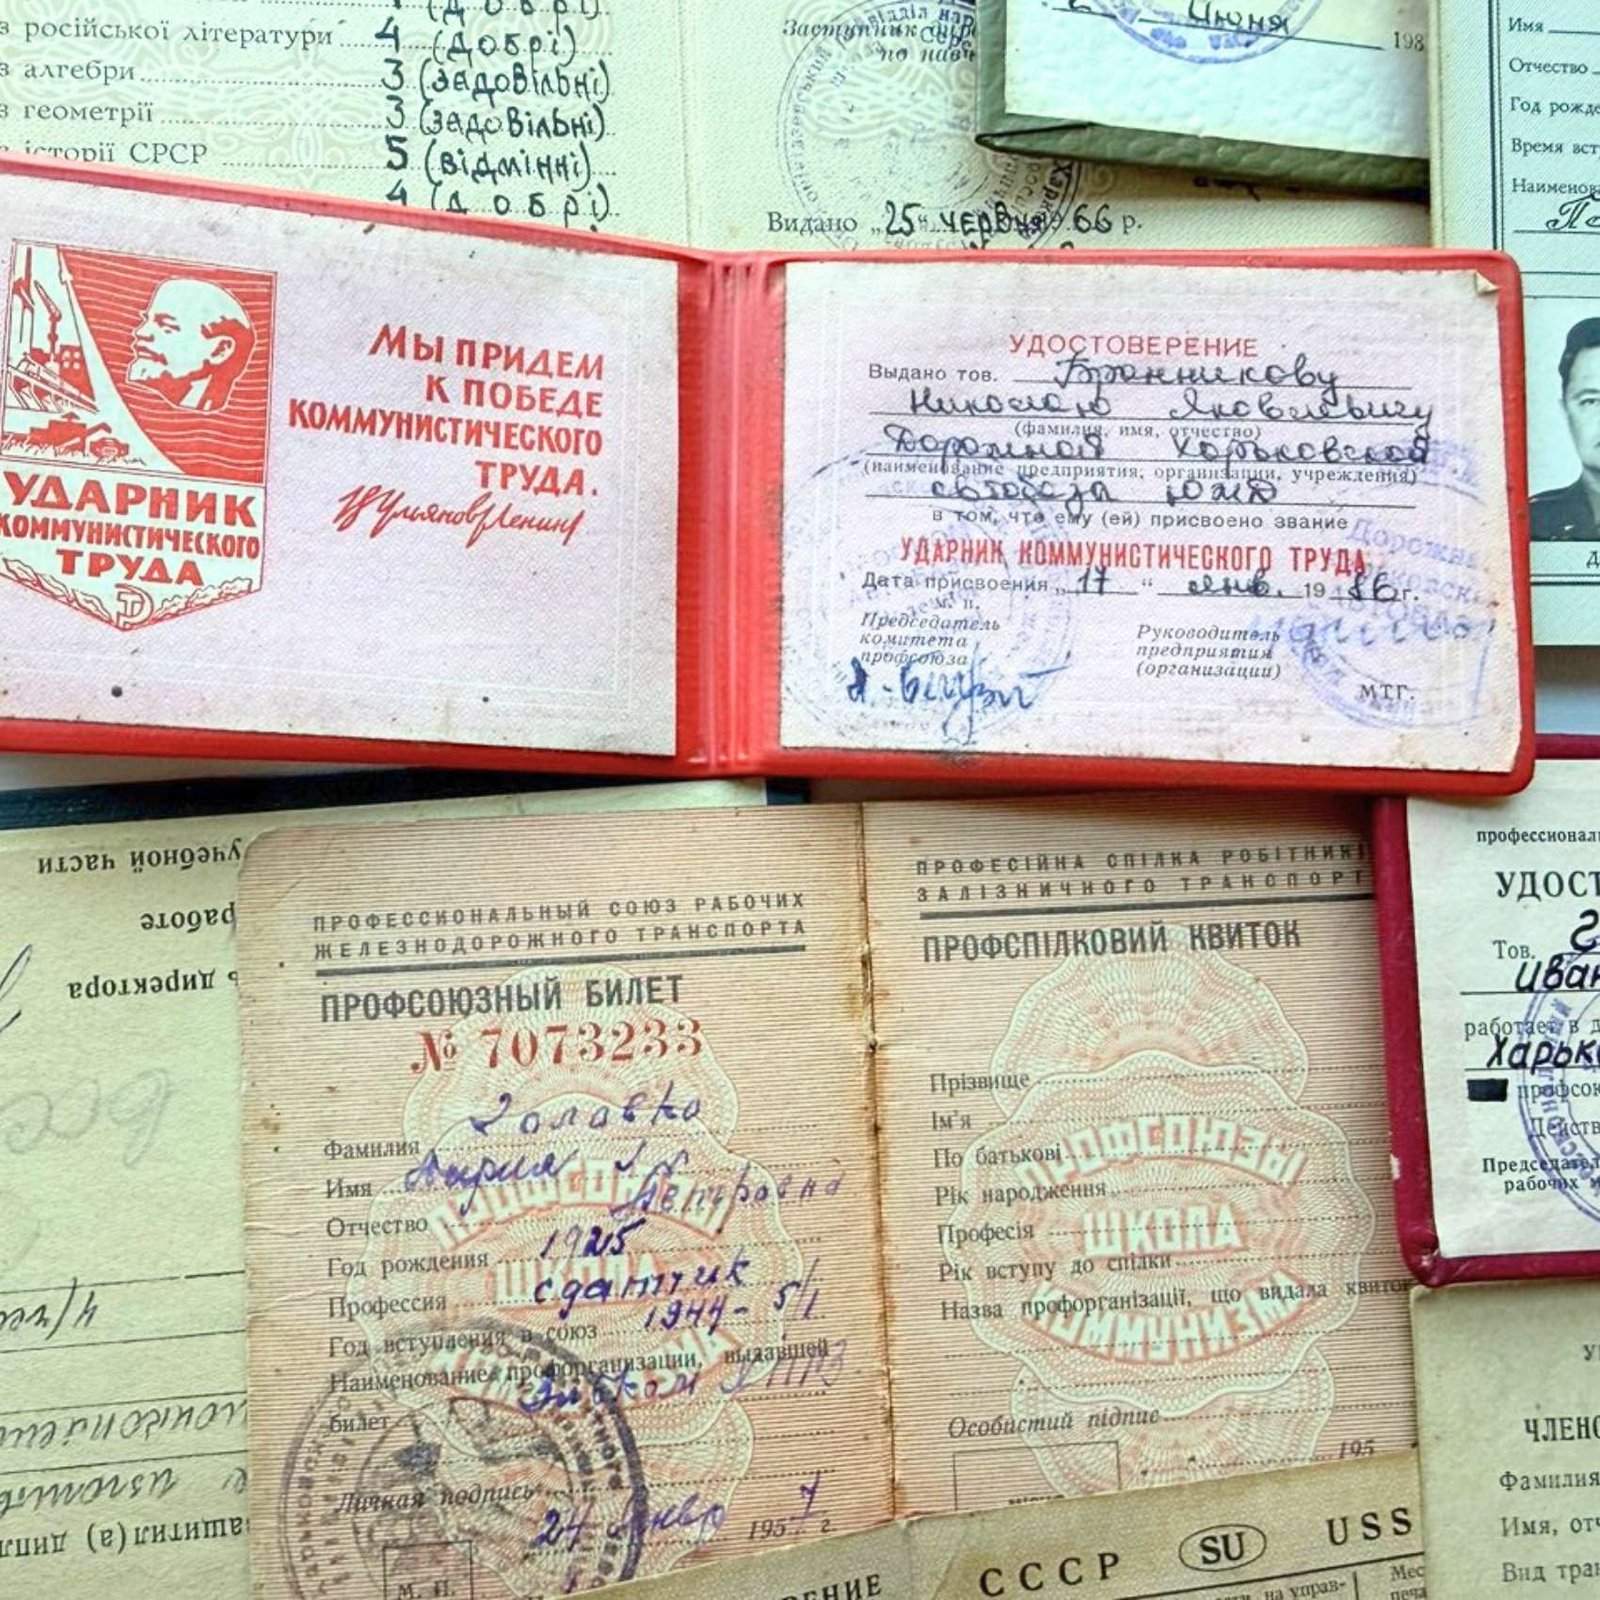 (добрі)
з російської літератури 4 (добрі)
з алгебри 3 (задовільні)
з геометрії 3 (задовільні)
з історії СРСР 5 (відмінні)
4 (добрі)
Видано „25" червня 1966 р.
Июня
198
Имя
Отчество
Год рожде
Время вст
Наименова
УДАРНИК
КОММУНИСТИЧЕСКОГО
ТРУДА
МЫ ПРИДЕМ
К ПОБЕДЕ
КОММУНИСТИЧЕСКОГО
ТРУДА.
В Ульянов (Ленин)
УДОСТОВЕРЕНИЕ
Выдано тов. Бранникову
Николаю Яковлевичу
(фамилия, имя, отчество)
Дорожной Харьковской
(наименование предприятия, организации, учреждения)
автобаза ЮЖД
в том, что ему (ей) присвоено звание
УДАРНИК КОММУНИСТИЧЕСКОГО ТРУДА
Дата присвоения „17" янв. 1986 г.
м. п.
Председатель
комитета
профсоюза
Руководитель
предприятия
(организации)
МТГ.
учебной части
работе
ь директора
ащитил(а) дипл
ПРОФЕССИОНАЛЬНЫЙ СОЮЗ РАБОЧИХ
ЖЕЛЕЗНОДОРОЖНОГО ТРАНСПОРТА
ПРОФСОЮЗНЫЙ БИЛЕТ
№ 7073233
Фамилия Головко
Имя Мария
Отчество Петровна
Год рождения 1925
Профессия сдатчик
Год вступления в союз 1944-5/I
Наименование профорганизации, выдавшей
билет
Личная подпись
24 Янвр 1957 г.
М. П.
ПРОФСОЮЗЫ
ШКОЛА
КОММУНИЗМА
ПРОФЕСІЙНА СПІЛКА РОБІТНИКІ
ЗАЛІЗНИЧНОГО ТРАНСПОРТ
ПРОФСПІЛКОВИЙ КВИТОК
Прізвище
Ім'я
По батькові
Рік народження
Професія
Рік вступу до спілки
Назва профорганізації, що видала квиток
Особистий підпис
195
ПРОФСОЮЗЫ
ШКОЛА
КОММУНИЗМА
профессиональ
УДОСТ
Тов.
Иван
работает в д
Харьк
профсою
Действ
Председател
рабочих м
ЕНИЕ
СССР SU USS
на управ-
Мес
печа
ЧЛЕНС
Фамилия
Имя, отч
Вид тран